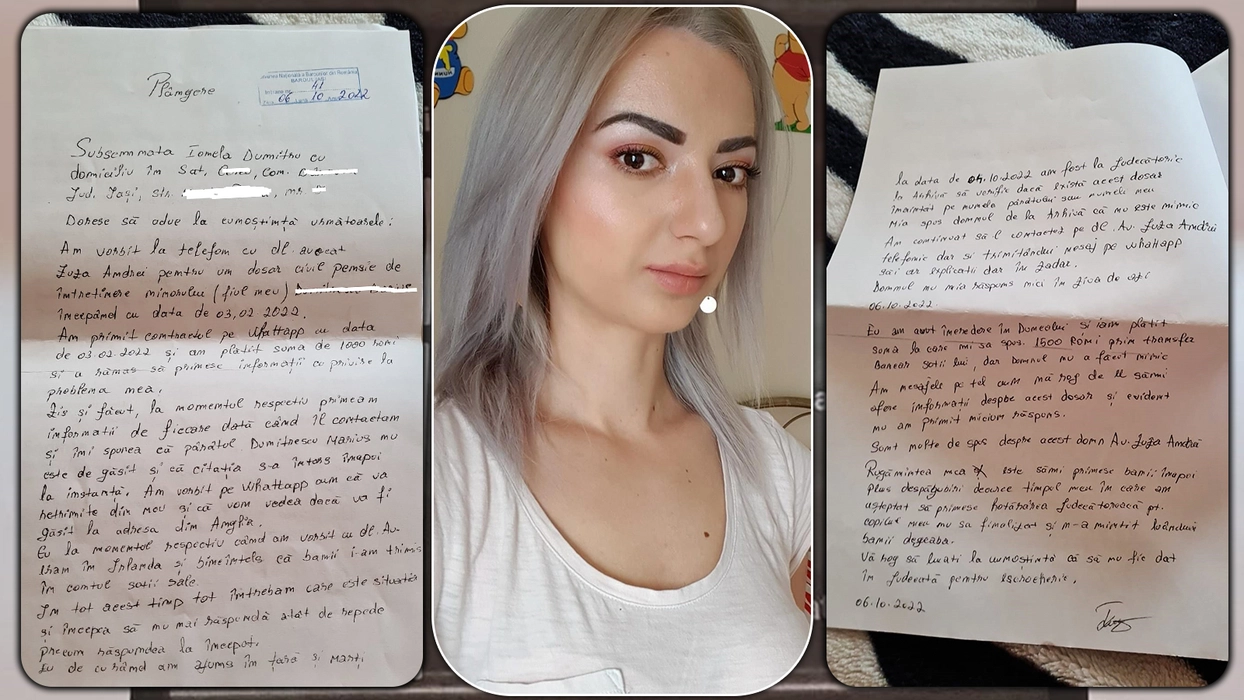 Plângere
Uniunea Națională a Barourilor din România
BAROUL IAȘI
41
06 10 2022
Subsemnata Ionela Dumitru cu
domiciliu în Sat, com.
Jud. Iași, str. nr.
Doresc să aduc la cunoștință următoarele:
Am vorbit la telefon cu dl. avocat
Zuza Andrei pentru un dosar civil pensie de
întreținere minorului (fiul meu)
începând cu data de 03,02 2022.
Am primit contractul pe Whattapp cu data
de 03.02.2022 și am platit suma de 1000 roni
și a rămas să primesc informații cu privire la
problema mea.
Zis și făcut, la momentul respectiv primeam
informatii de fiecare dată când îl contactam
și îmi spunea că pârâtul Dumitrescu Marius nu
este de găsit și că citația s-a întors înapoi
la instanță. Am vorbit pe Whattapp cum că va
retrimite din nou și că vom vedea dacă va fi
găsit la adresa din Anglia.
Eu la momentul respectiv când am vorbit cu dl. Av.
eram în Irlanda și bineînteles că banii i-am trimis
în contul sotii sale.
În tot acest timp tot întrebam care este situația
și începea să nu mai răspundă atât de repede
precum răspundea la început.
Eu de curând am ajuns în țară și Marți,
la data de 04.10.2022 am fost la Judecătorie
în Arhivă să verific dacă există acest dosar
înaintat pe numele pârâtului sau numele meu
Mia spus domnul de la Arhivă că nu este nimic
Am continuat să-l contactez pe dl. Av. Zuza Andrei
telefonic dar si trimitându-i mesaj pe whattapp
să-i cer explicatii dar în zadar.
Domnul nu mia răspuns nici în ziua de azi
06.10.2022.
Eu am avut încredere în Dumealui și iam platit
suma la care mi sa spus 1500 RONI prin transfer
Bancar sotii lui, dar Domnul nu a făcut nimic
Am mesajele pe tel cum mă rog de el sămi
ofere informatii despre acest dosar și evident
nu am primit niciun răspuns.
Sunt multe de spus despre acest domn Av. Zuza Andrei
Rugămintea mea este sămi primesc banii înapoi
plus despăgubiri deoarce timpul meu în care am
așteptat să primesc hotărârea Judecătorească pt.
copilul meu nu sa finalizat și m-a mintit luându-i
banii degeaba.
Vă rog să luati la cunostintă că să nu fie dat
în Judecată pentru escrocherie.
06.10.2022